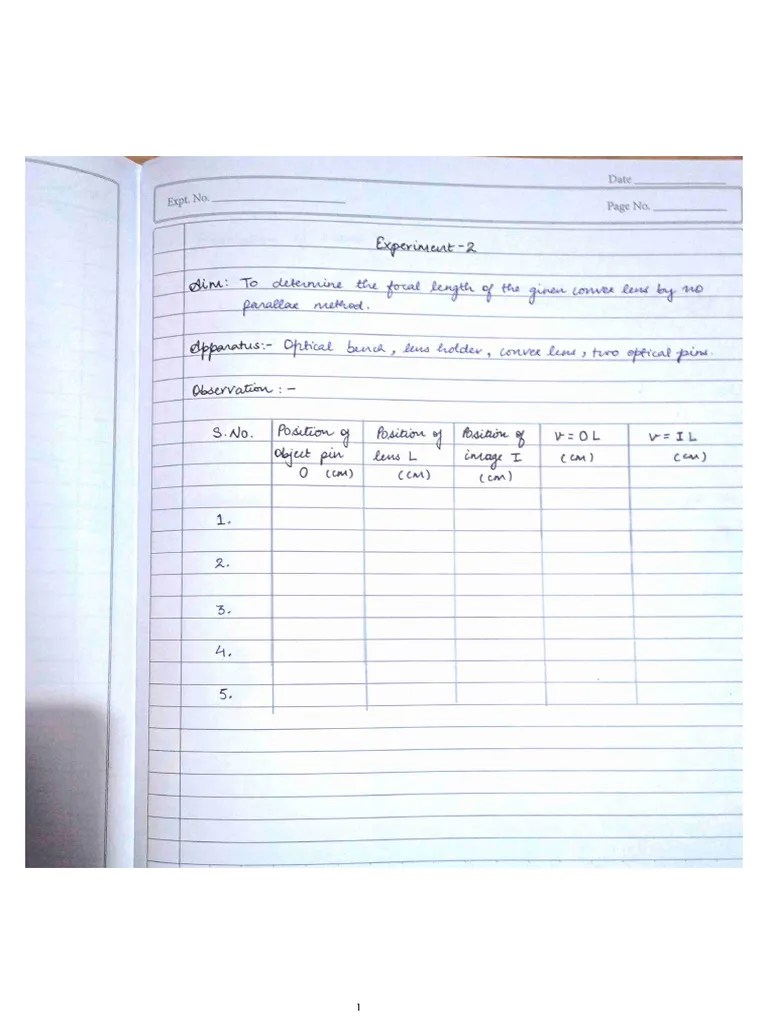 Date
Expt. No.
Page No.
Experiment-2
Aim: To determine the focal length of the given convex lens by no
parallax method.
Apparatus:- Optical bench, lens holder, convex lens, two optical pins.
Observation :-
S.No. Position of Position of Position of v = OL v = IL
Object pin lens L image I (cm) (cm)
O (cm) (cm) (cm)
1.
2.
3.
4.
5.
1